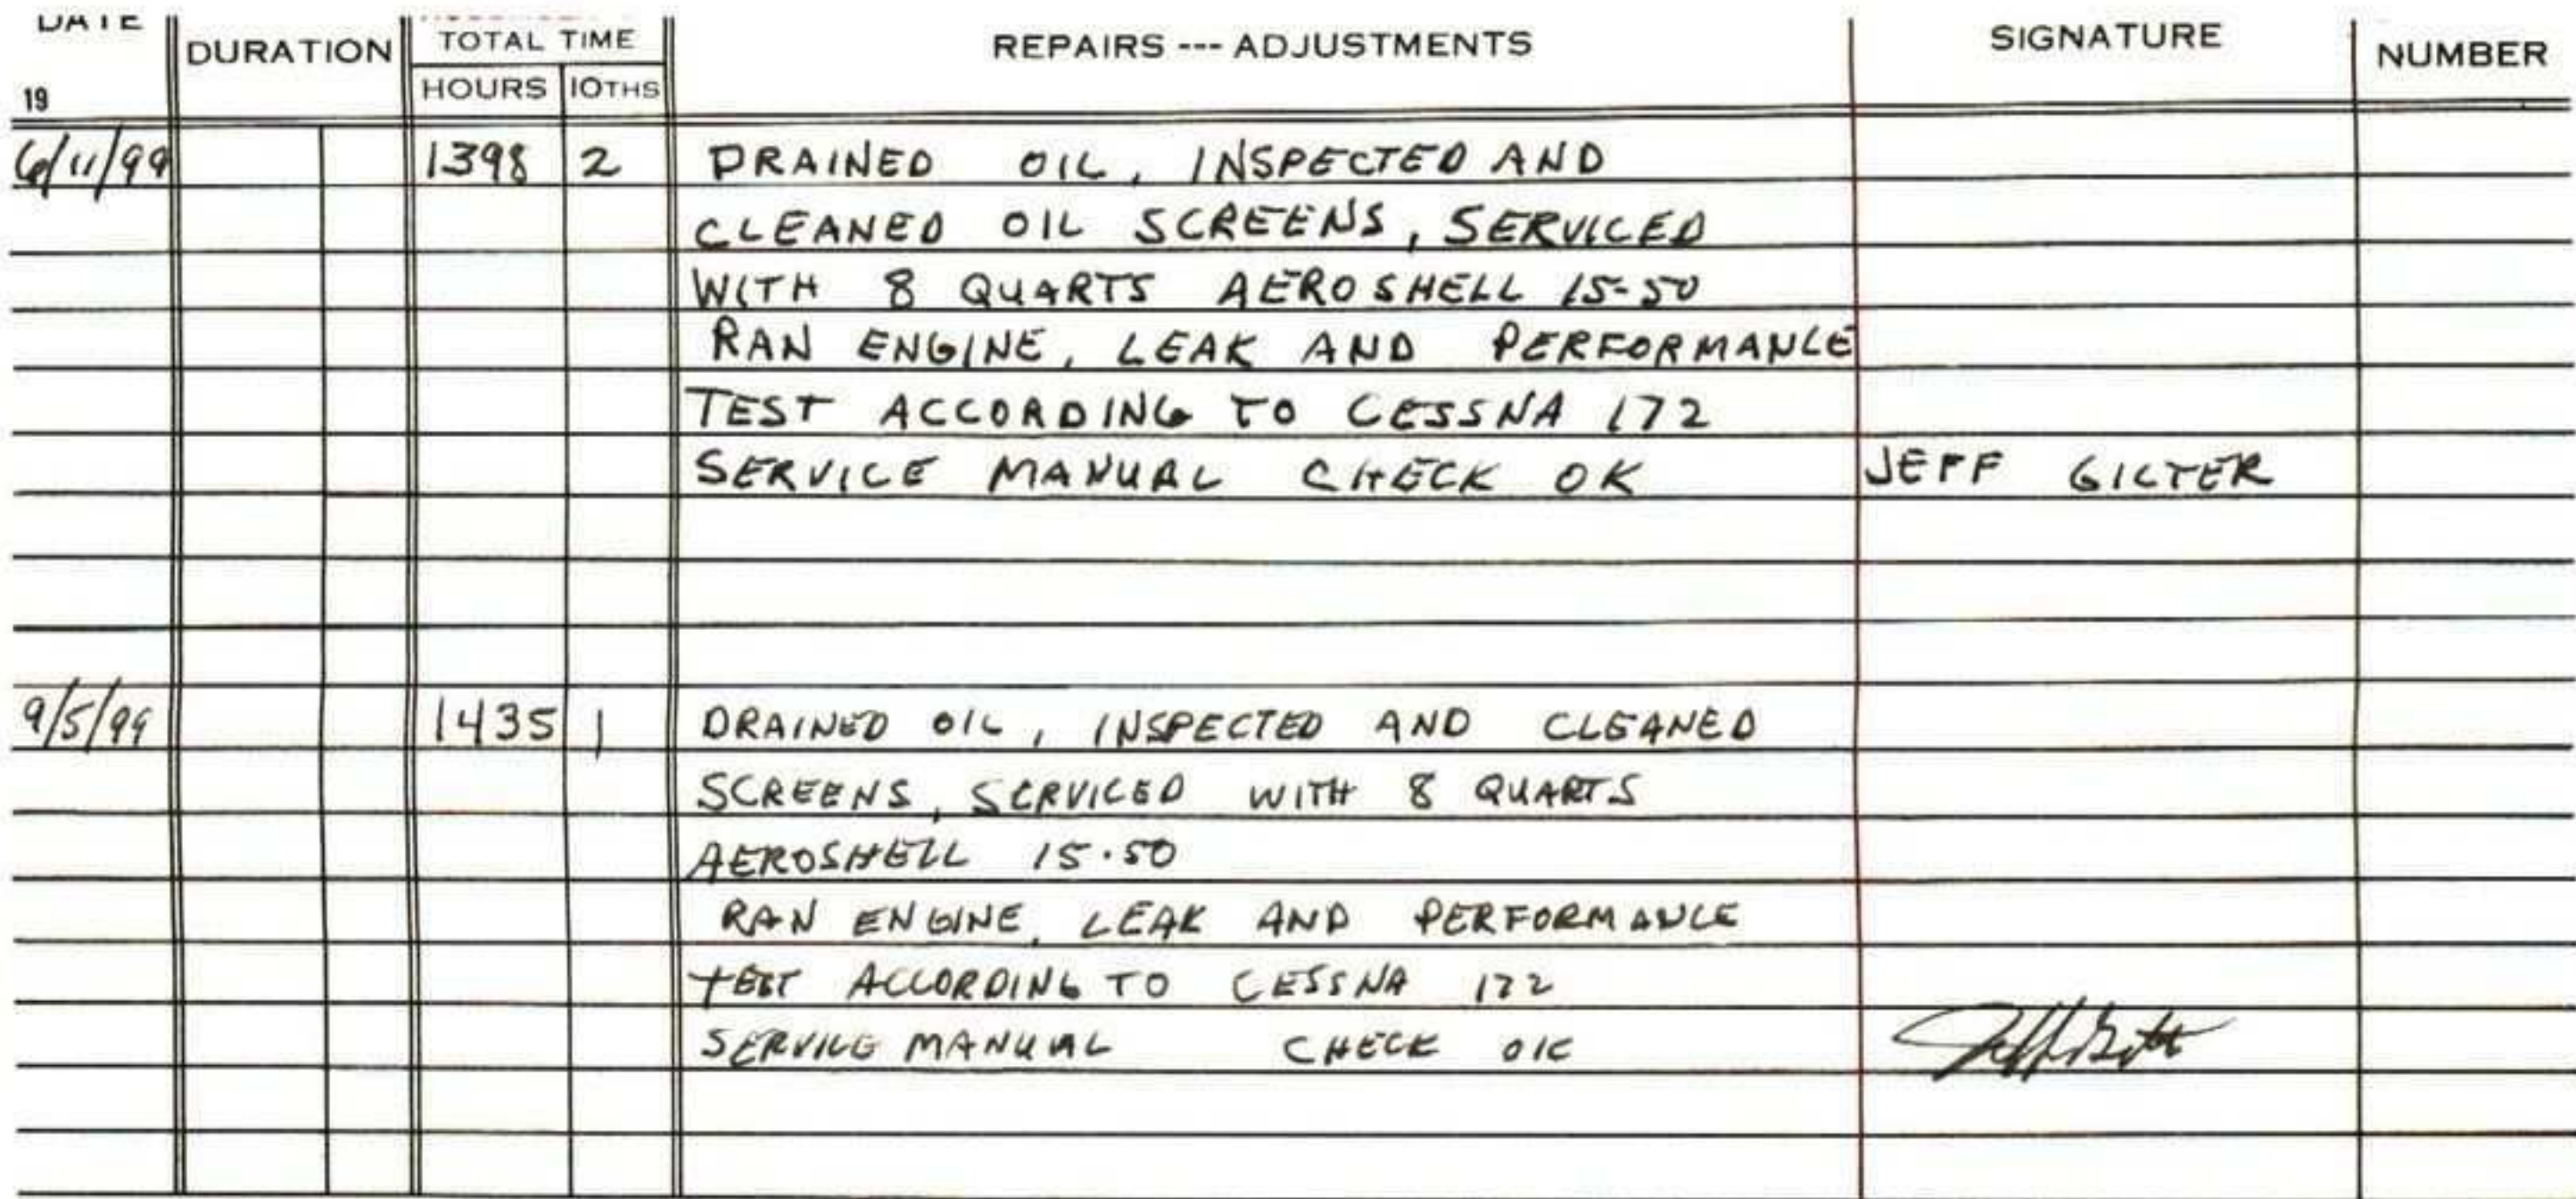 DATE DURATION TOTAL TIME REPAIRS --- ADJUSTMENTS SIGNATURE NUMBER
19 HOURS 10THS
6/11/99 1398 2 DRAINED OIL, INSPECTED AND
CLEANED OIL SCREENS, SERVICED
WITH 8 QUARTS AEROSHELL 15-50
RAN ENGINE, LEAK AND PERFORMANCE
TEST ACCORDING TO CESSNA 172
SERVICE MANUAL CHECK OK JEFF
9/5/99 1435 1 DRAINED OIL, INSPECTED AND CLEANED
SCREENS, SERVICED WITH 8 QUARTS
AEROSHELL 15-50
RAN ENGINE, LEAK AND PERFORMANCE
TEST ACCORDING TO CESSNA 172
SERVICE MANUAL CHECK OK